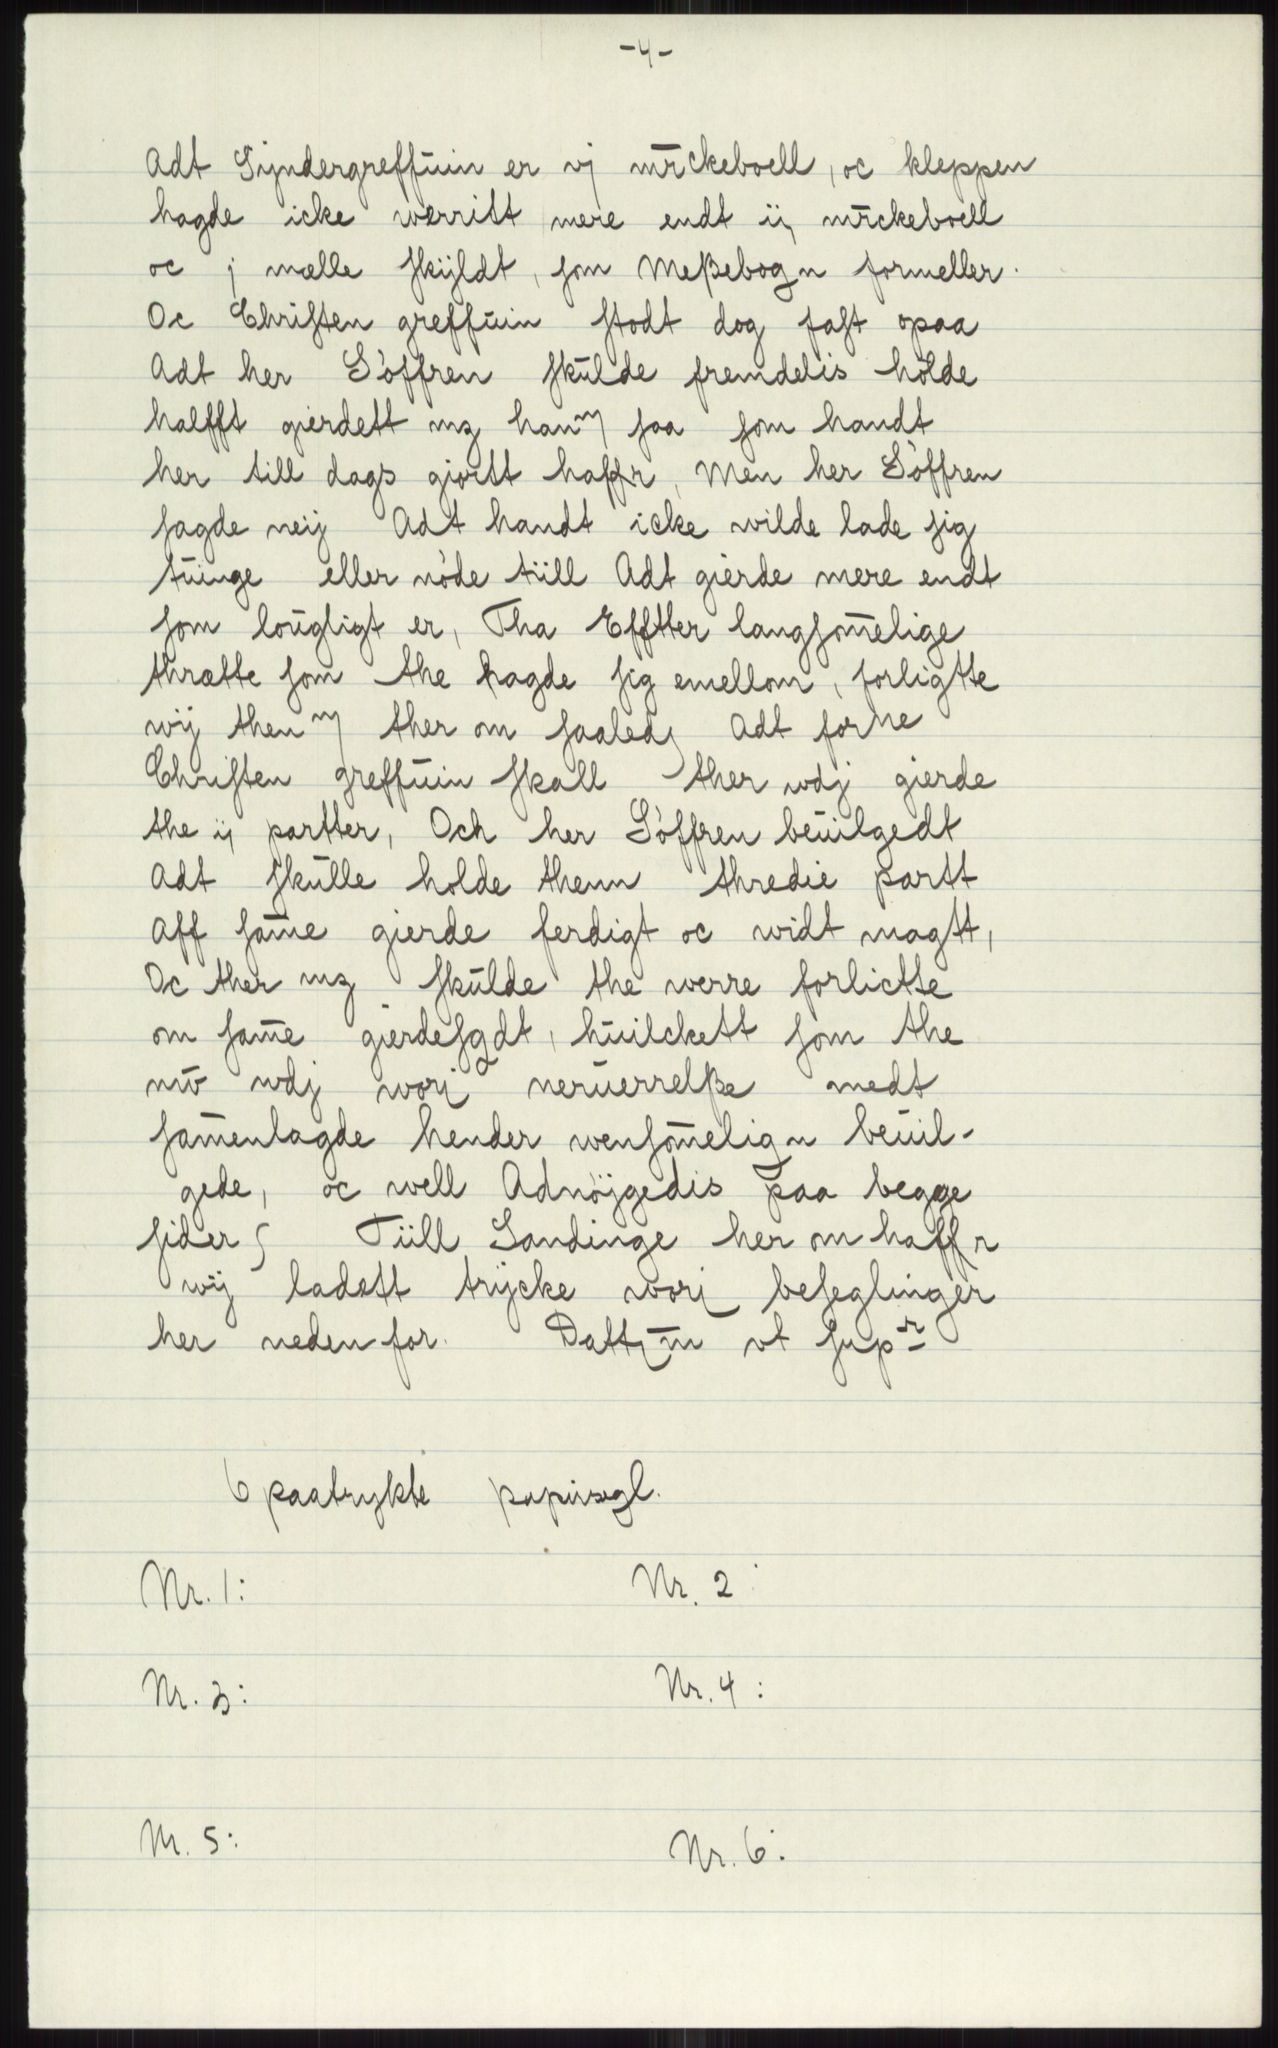 -4-
Adt Syndergreffuin er vj mrckeboell, oc kleppen
hagde icke werritt mere endt ij mrckeboell
oc j mælle skyldt, som Meßebogn formeller.
Oc Christen greffuin stodt dog fast opaa
Adt her Söffren skulde fremdelis holde
halfft gierdett mz hanm saa som handt
her till dags giortt haffr, Men her Söffren
sagde neij Adt handt icke wilde lade sig
tuinge eller nøde tiill Adt gierde mere endt
som lougligt er, Tha Efftter langsomelige
thrætte som the hagde sig emellom, forligtte
wij thenm ther om saaledz Adt forne
Christen greffuin skall ther wdj gierde
the ij partter, Och her Söffren beuilgedt
Adt skulle holde thenn thredie partt
Aff same gierde ferdigt oc widt magtt,
Oc ther mz skulde the werre forlictte
om same gierdesgdt, huilckett som the
nw wdj worj neruerrelße medt
samenlagde hender wensomelign beuil-
gede, oc well Adnöjgedis paa begge
sider Tiill Sandinge her om haffr
wij ladett trycke worj beseglinger
her nedenfor. Dattum vt supr
6 paatrykte papirsegl.
Nr. 1: Nr. 2
Nr. 3: Nr. 4:
Nr. 5: Nr. 6: